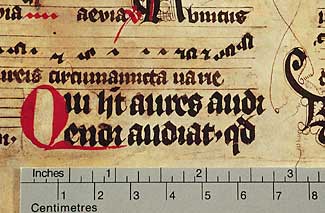 aevia
ureis circumamicta varie
Qui ht aures audi
endi audiat, qd
Inches 1 2 3
1 2 3 4 5 6 7 8
Centimetres